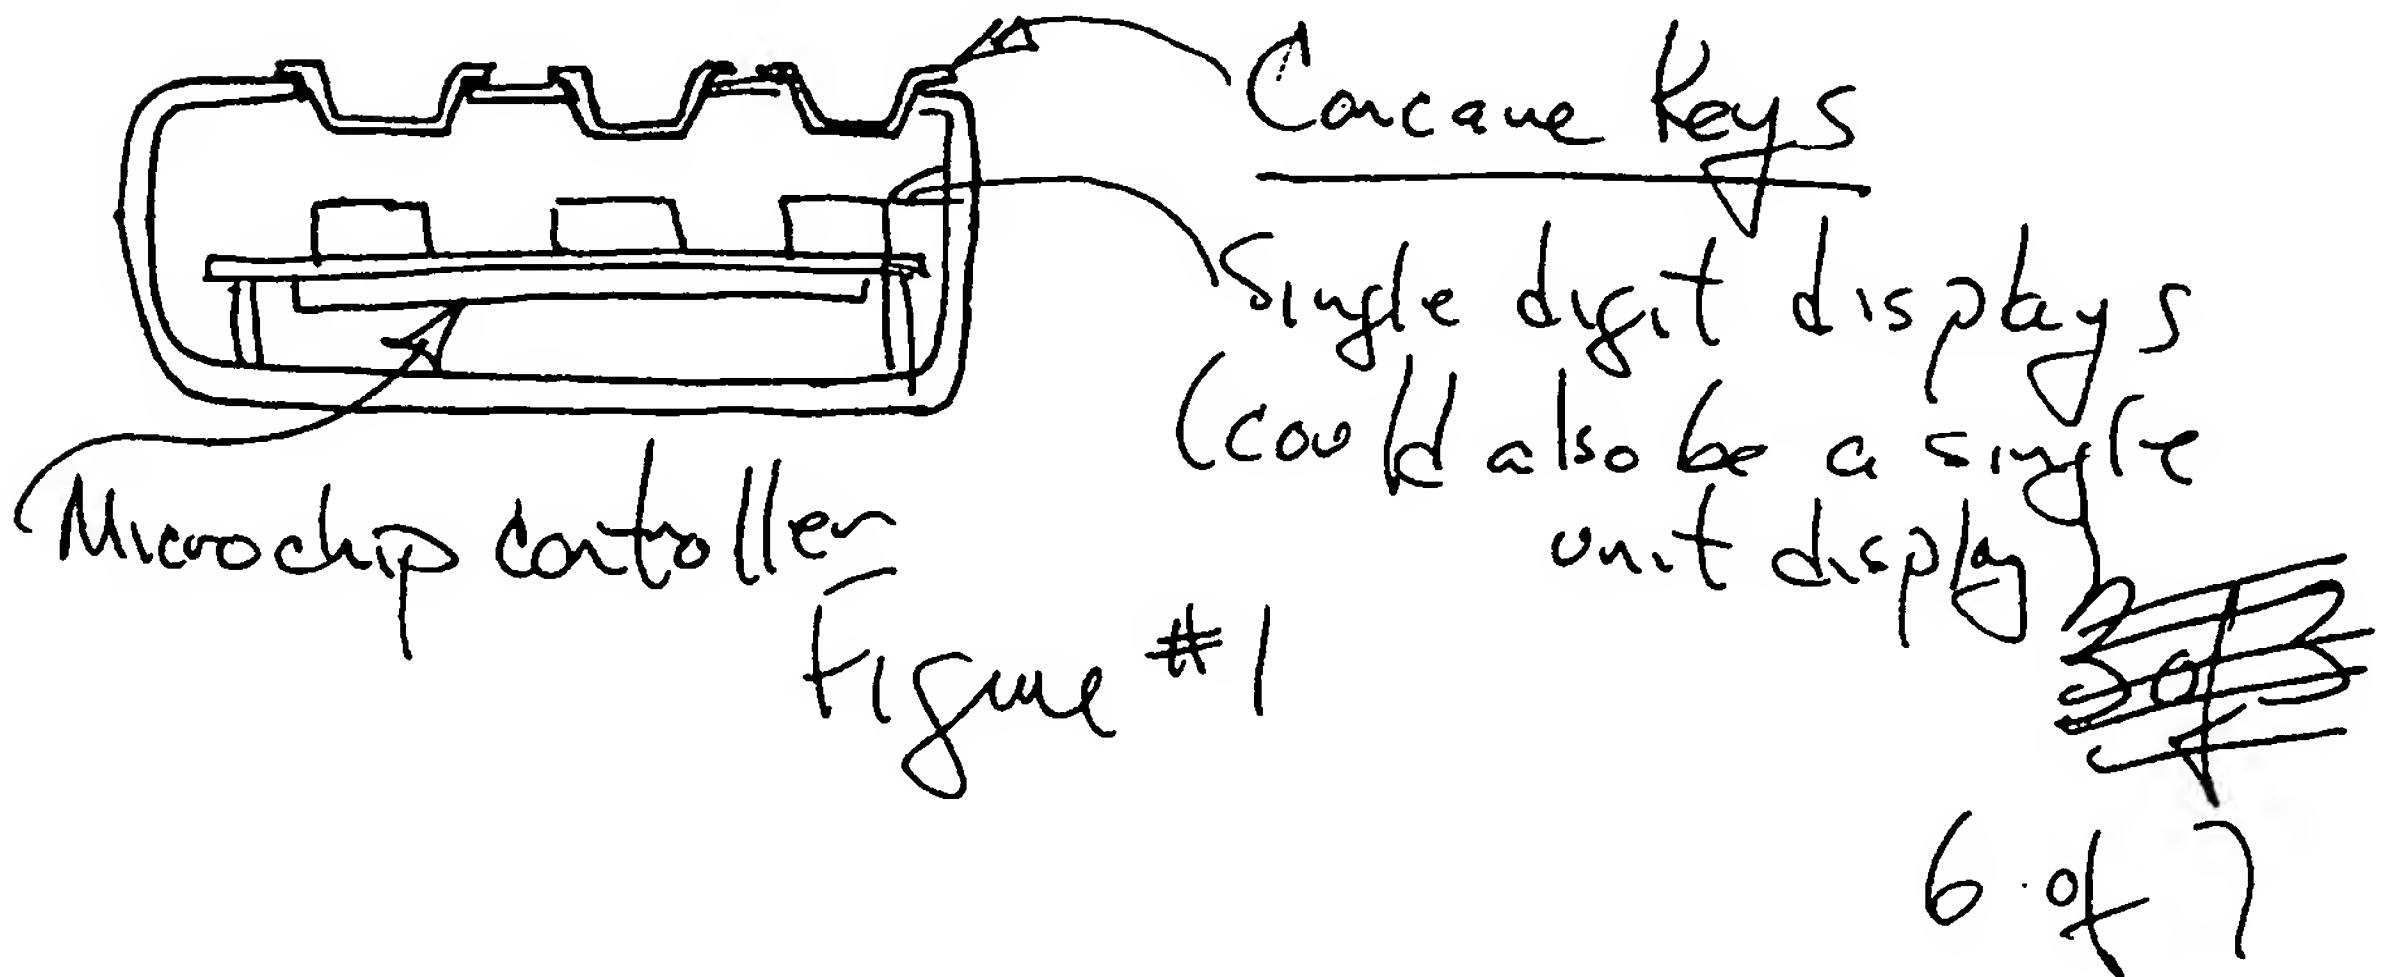 Concave Keys
Single digit displays
(could also be a single
unit display
Microchip controller
Figure #1
6 of 7